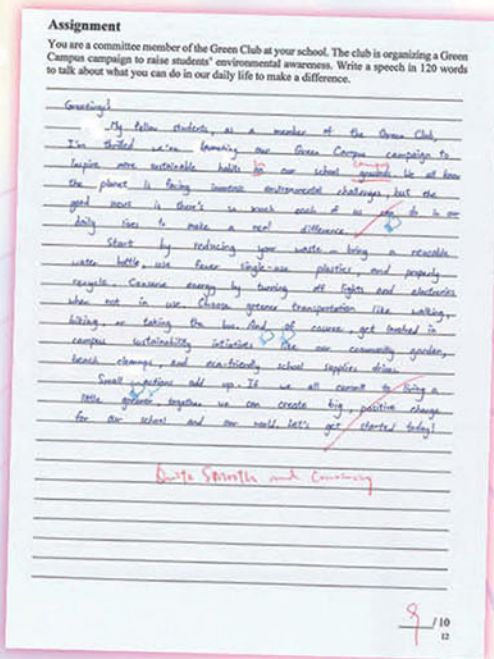 Assignment
You are a committee member of the Green Club at your school. The club is organizing a Green
Campus campaign to raise students' environmental awareness. Write a speech in 120 words
to talk about what you can do in our daily life to make a difference.
Greetings!
My fellow students, as a member of the Green Club,
I'm thrilled we're launching our Green Campus campaign to
inspire more sustainable habits on our school grounds. We all know
the planet is facing immense environmental challenges, but the
good news is there's so much each of us can do in our
daily lives to make a real difference.
Start by reducing your waste - bring a reusable
water bottle, use fewer single-use plastics, and properly
recycle. Conserve energy by turning off lights and electronics
when not in use. Choose greener transportation like walking,
biking, or taking the bus. And of course, get involved in
campus sustainability intiatives like our community garden,
beach cleanups, and eco-friendly school supplies drives.
Small actions add up. If we all commit to living a
little greener, together we can create big, positive change
for our school and our world. Let's get started today!
Quite Smooth and Convincing
/10
12